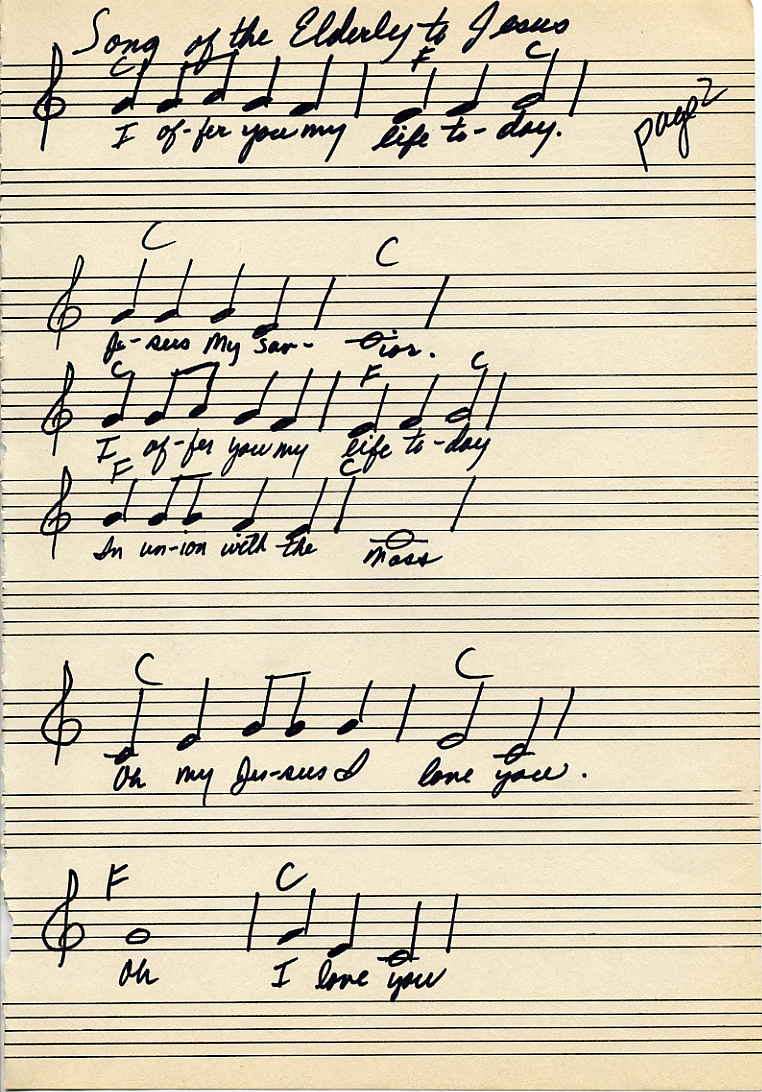 Song of the Elderly to Jesus
C F C
I of-fer you my life to-day.
page 2
C C
Je-sus My Sav-ior.
C F C
I of-fer you my life to-day
F C
In un-ion with the Mass
C C
Oh my Je-sus I love you.
F C
Oh I love you